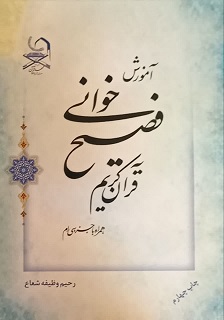 آموزش
فصیح خوانی
قرآن کریم
همراه با جزء سی ام
رحیم وظیفه شعاع
چاپ چهارم